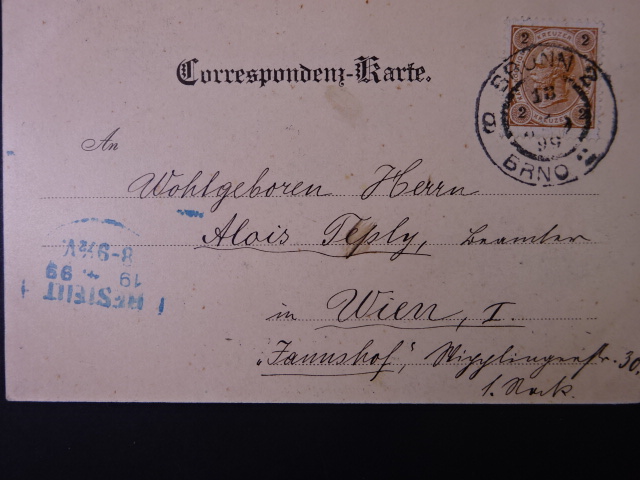 2 KREUZER 2
2 KREUZER 2
BRÜNN 2
18
99
BRNO
Correspondenz-Karte.
An
Wohlgeboren Herrn
Alois Teply, Beamter
in Wien, I.
Wipplingerstr. 30.
1. Stock.
BESTELLT
19 4. 99
8-9½V
1